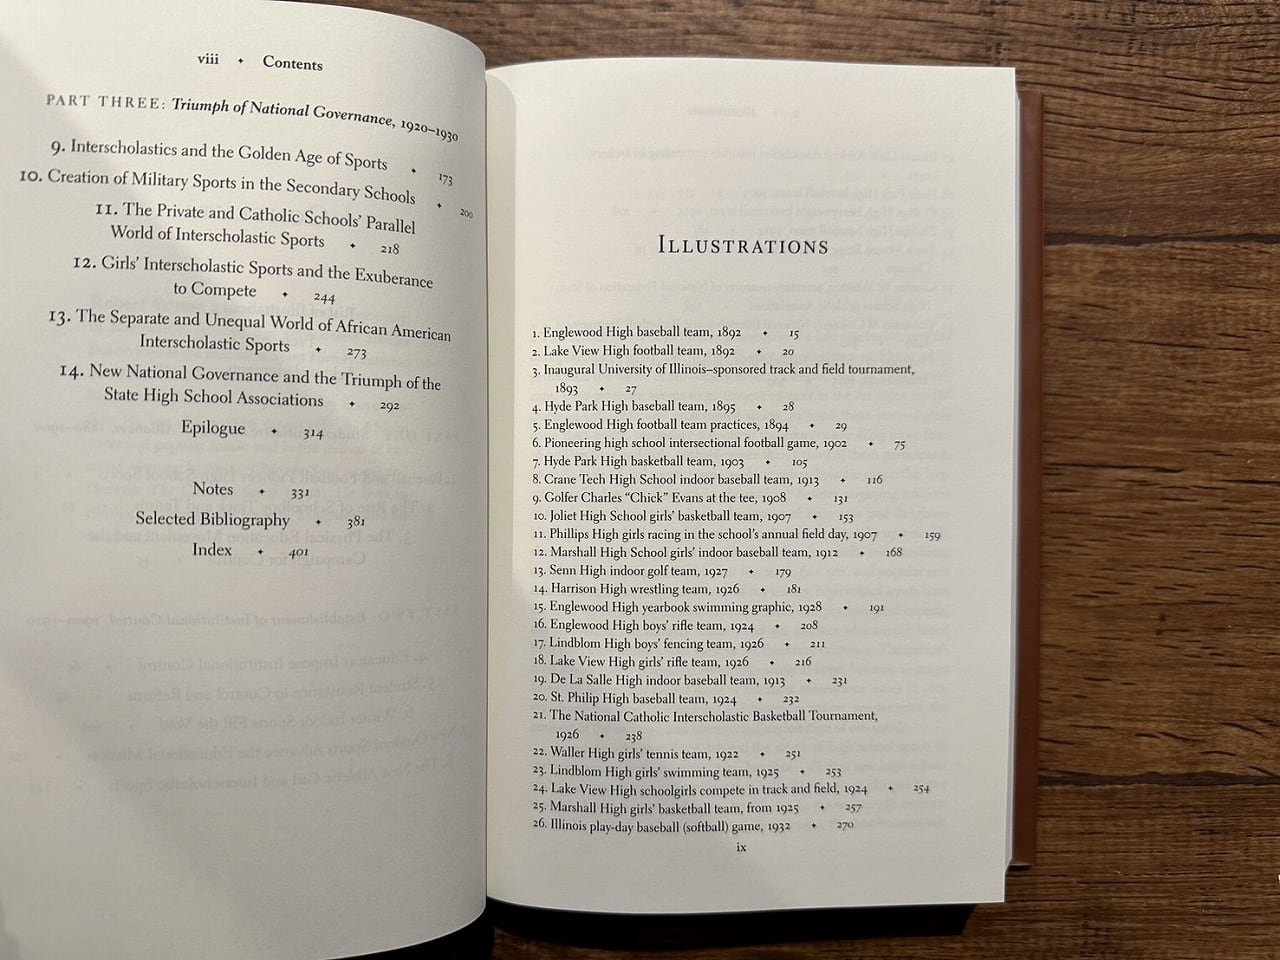 viii ✦ Contents
PART THREE: Triumph of National Governance, 1920–1930
9. Interscholastics and the Golden Age of Sports ✦ 173
10. Creation of Military Sports in the Secondary Schools ✦ 200
11. The Private and Catholic Schools' Parallel
World of Interscholastic Sports ✦ 218
12. Girls' Interscholastic Sports and the Exuberance
to Compete ✦ 244
13. The Separate and Unequal World of African American
Interscholastic Sports ✦ 273
14. New National Governance and the Triumph of the
State High School Associations ✦ 292
Epilogue ✦ 314
Notes ✦ 331
Selected Bibliography ✦ 381
Index ✦ 401
ILLUSTRATIONS
1. Englewood High baseball team, 1892 ✦ 15
2. Lake View High football team, 1892 ✦ 20
3. Inaugural University of Illinois–sponsored track and field tournament,
1893 ✦ 27
4. Hyde Park High baseball team, 1895 ✦ 28
5. Englewood High football team practices, 1894 ✦ 29
6. Pioneering high school intersectional football game, 1902 ✦ 75
7. Hyde Park High basketball team, 1903 ✦ 105
8. Crane Tech High School indoor baseball team, 1913 ✦ 116
9. Golfer Charles “Chick” Evans at the tee, 1908 ✦ 131
10. Joliet High School girls' basketball team, 1907 ✦ 153
11. Phillips High girls racing in the school's annual field day, 1907 ✦ 159
12. Marshall High School girls' indoor baseball team, 1912 ✦ 168
13. Senn High indoor golf team, 1927 ✦ 179
14. Harrison High wrestling team, 1926 ✦ 181
15. Englewood High yearbook swimming graphic, 1928 ✦ 191
16. Englewood High boys' rifle team, 1924 ✦ 208
17. Lindblom High boys' fencing team, 1926 ✦ 211
18. Lake View High girls' rifle team, 1926 ✦ 216
19. De La Salle High indoor baseball team, 1913 ✦ 231
20. St. Philip High baseball team, 1924 ✦ 232
21. The National Catholic Interscholastic Basketball Tournament,
1926 ✦ 238
22. Waller High girls' tennis team, 1922 ✦ 251
23. Lindblom High girls' swimming team, 1925 ✦ 253
24. Lake View High schoolgirls compete in track and field, 1924 ✦ 254
25. Marshall High girls' basketball team, from 1925 ✦ 257
26. Illinois play-day baseball (softball) game, 1932 ✦ 270
ix